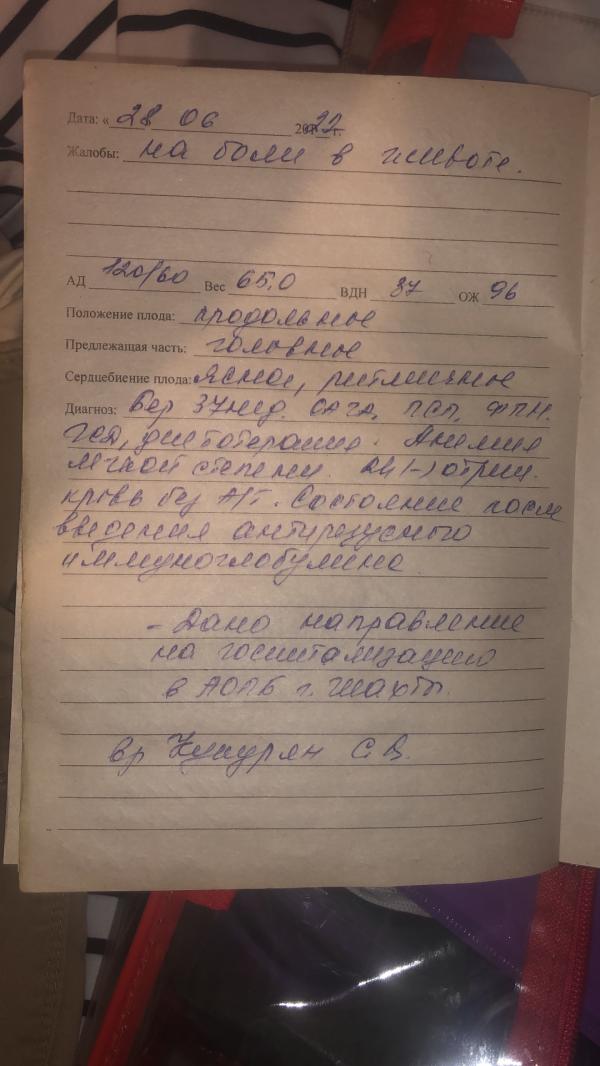 Дата: « 28 06 2022 г.
Жалобы: на боли в животе.
АД 120/60 Вес 65,0 ВДН 37 ОЖ 96
Положение плода: продольное
Предлежащая часть: головное
Сердцебиение плода: Ясное, ритмичное
Диагноз: Бер 37 нед. ОАГА, ПСП, ФПН.
ГСД, диетотерапия. Анемия
лёгкой степени. Rh (-) отриц.
кровь без А/Т. Состояние после
введения антирезусного
иммуноглобулина
- Дано направление
на госпитализацию
в г. Шахты.
вр С. В.